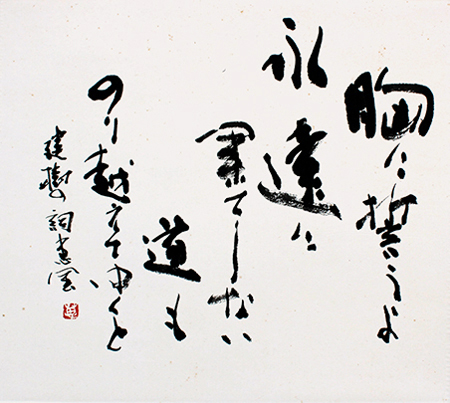 胸に誓うよ
永遠に
果てしない
道も
のり越えてゆくと
建樹 詞